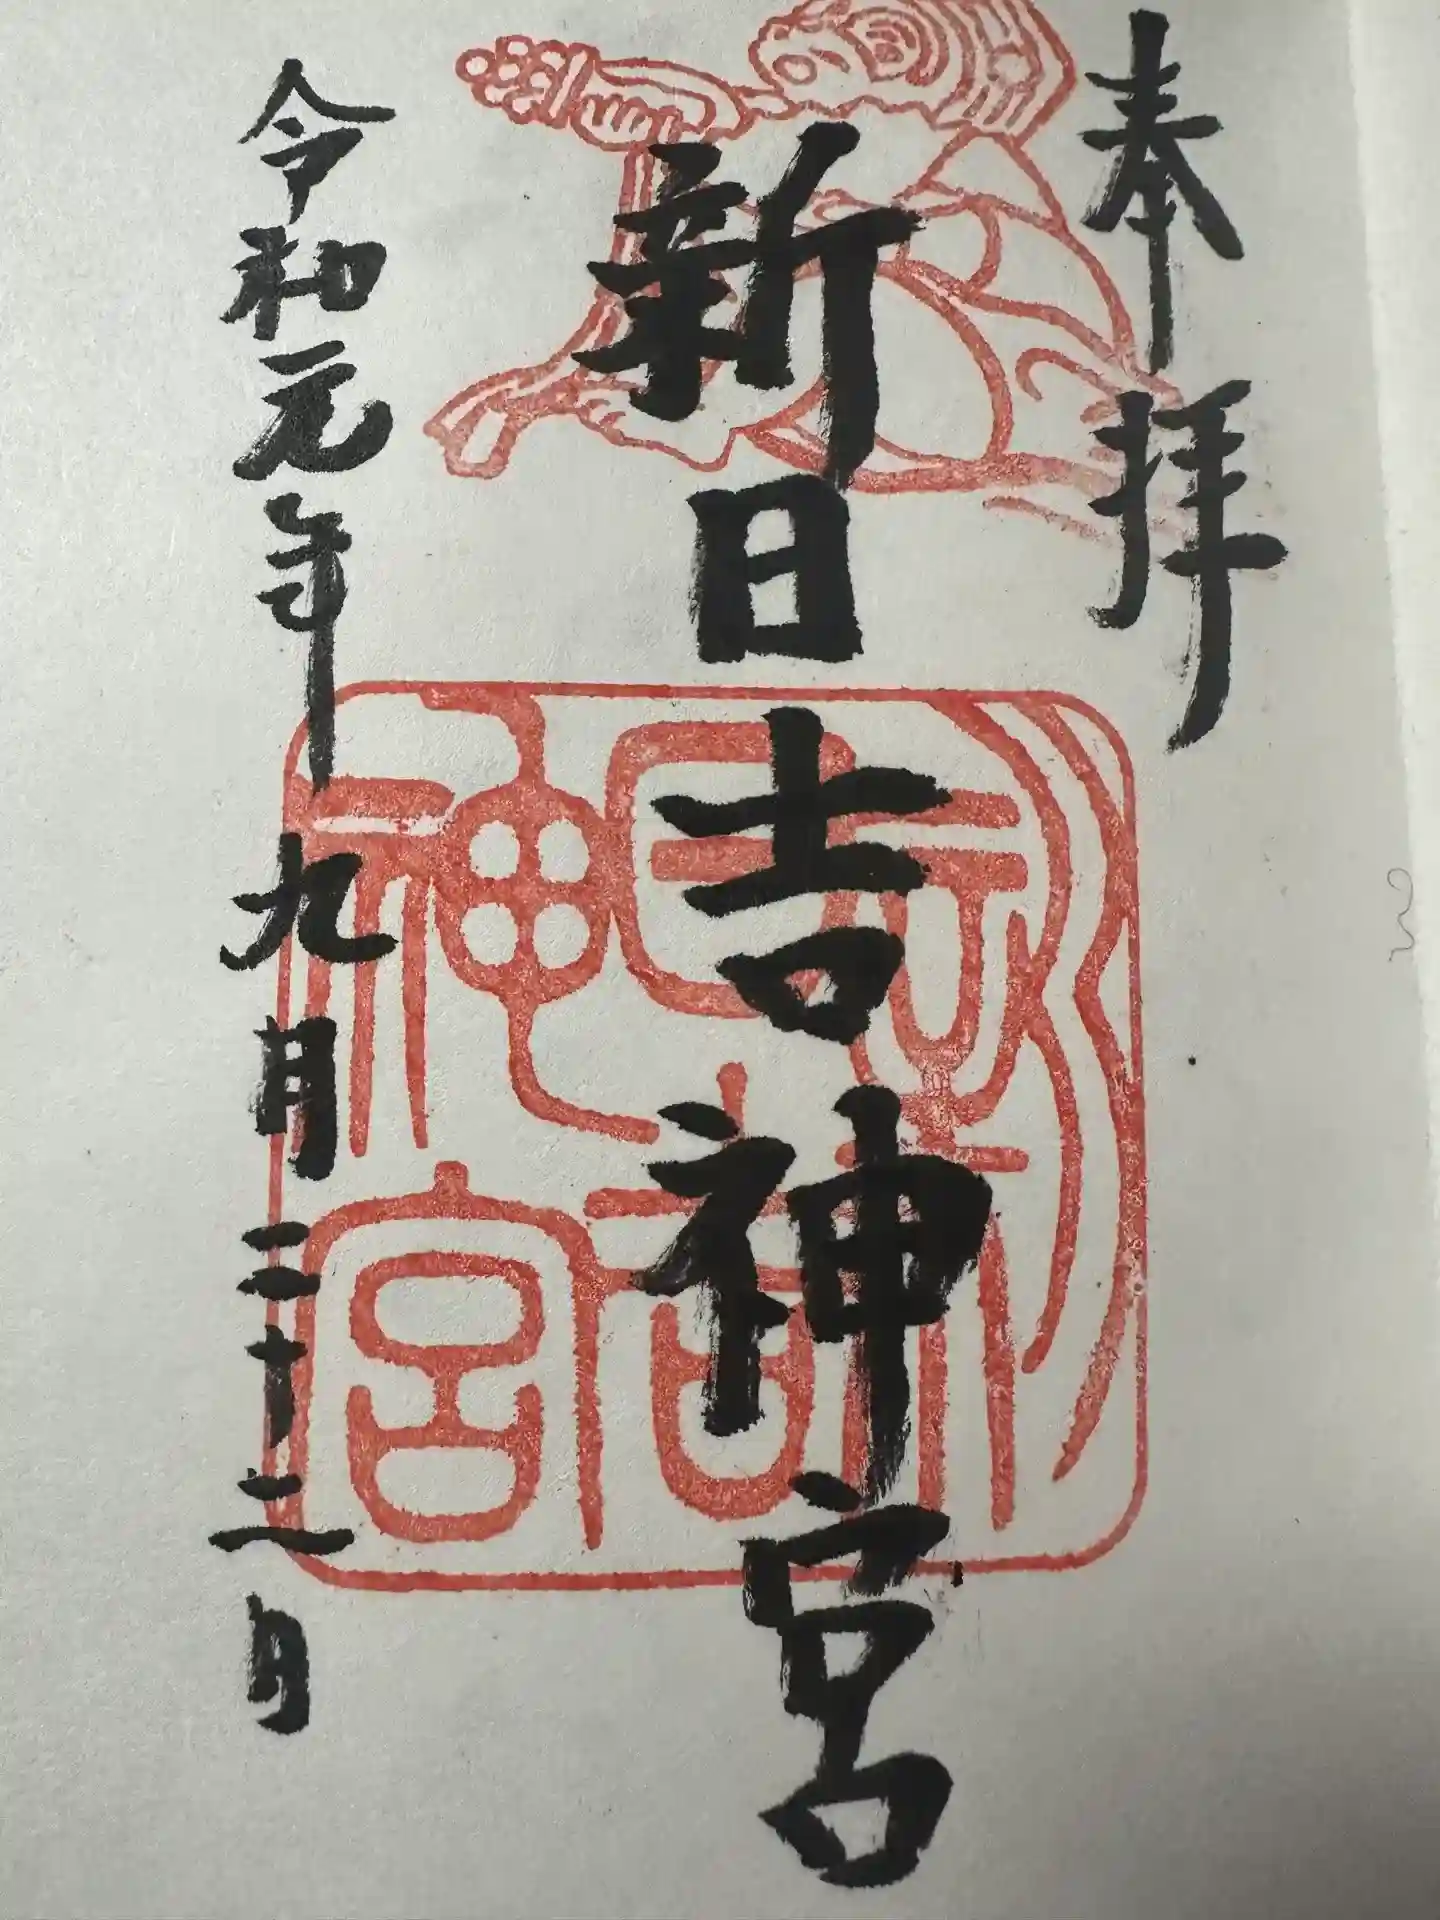 奉拝
新日吉神宮
令和元年九月二十二日
新
日吉
神宮